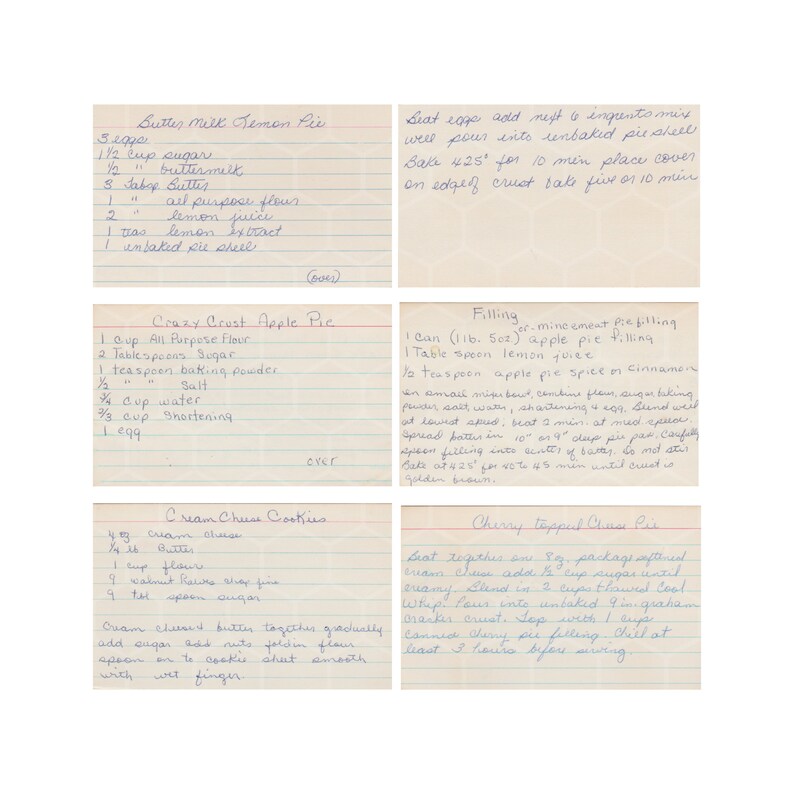 Butter Milk Lemon Pie
3 eggs
1 1/2 cup sugar
1/2 " buttermilk
3 Tabsp. Butter
1 " all purpose flour
2 " lemon juice
1 teas lemon extract
1 unbaked pie shell
(over)
Beat eggs add next 6 ingrents mix
well pour into unbaked pie shell
Bake 425° for 10 min place cover
on edge of crust bake five or 10 min
Crazy Crust Apple Pie
1 cup All Purpose Flour
2 Tablespoons Sugar
1 teaspoon baking powder
1/2 " " Salt
3/4 cup water
2/3 cup Shortening
1 egg
over
Filling
or mincemeat pie filling
1 can (1 lb. 5oz) apple pie filling
1 Table spoon lemon juice
1/2 teaspoon apple pie spice or Cinnamon
In small mixer bowl, combine flour, sugar, baking
powder, salt, water, shortening & egg. Blend well
at lowest speed, beat 2 min. at med. speed.
Spread batter in 10" or 9" deep pie pan. Carefully
spoon filling into center of batter. Do not stir
Bake at 425° for 40 to 45 min until crust is
golden brown.
Cream Cheese Cookies
4 oz cream cheese
1/4 lb Butter
1 cup flour
9 walnut halves chop fine
9 tbl spoon sugar
Cream cheese & butter together gradually
add sugar add nuts fold in flour
spoon on to cookie sheet smooth
with wet finger.
Cherry topped Cheese Pie
Beat together one 8 oz. package softened
cream cheese add 1/2 cup sugar until
creamy. Blend in 2 cups thawed Cool
Whip. Pour into unbaked 9 in. graham
cracker crust. Top with 1 cup
canned cherry pie filling. Chill at
least 3 hours before serving.